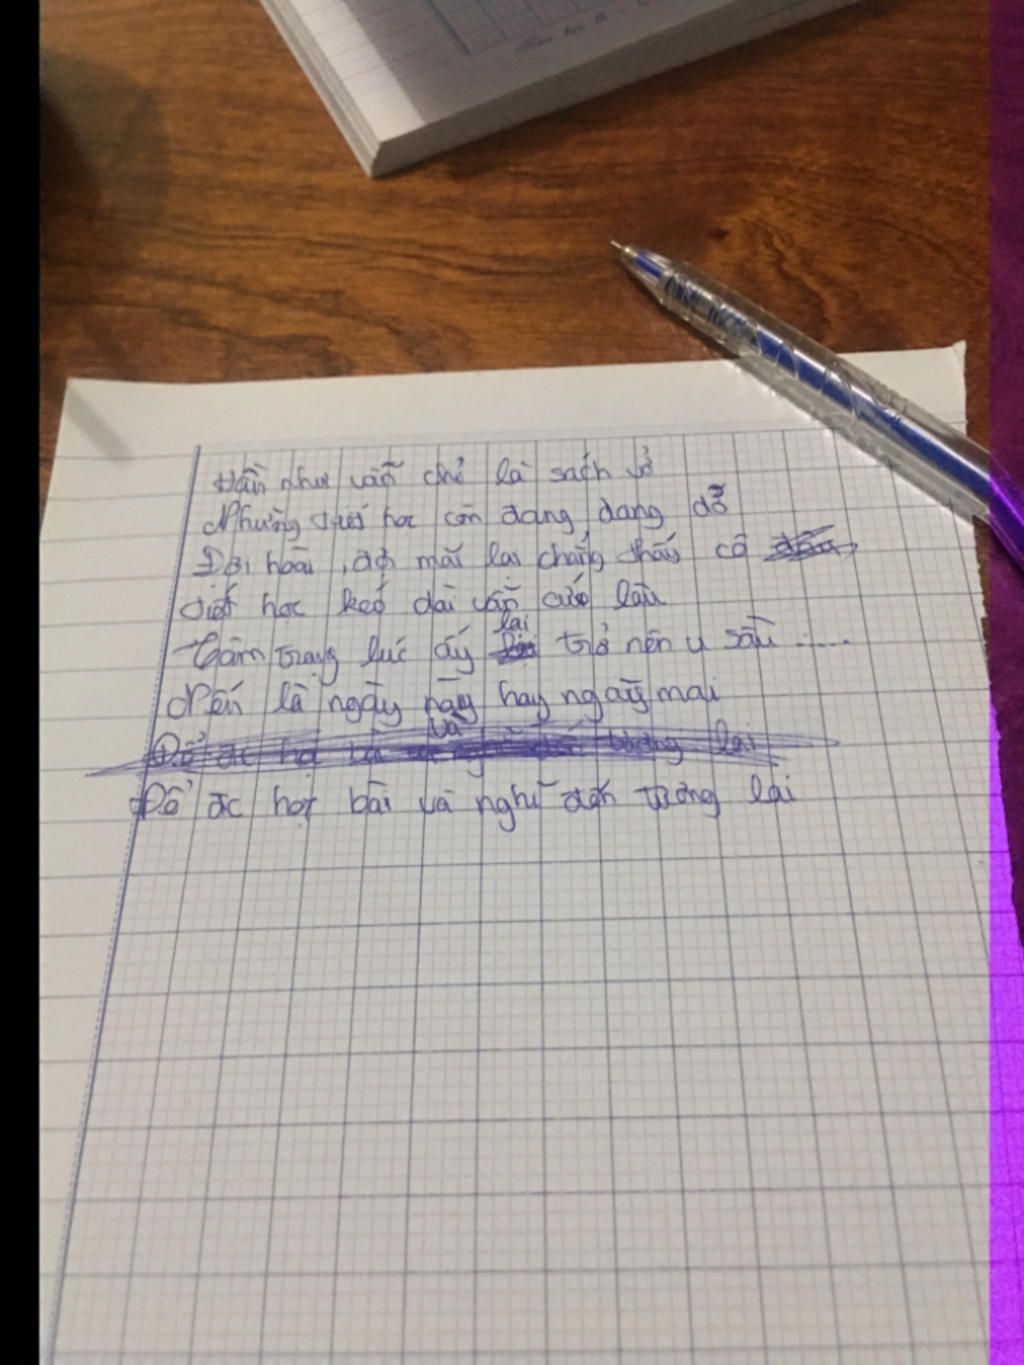 Hần như vẫn chỉ là sách vở
Những tiết học còn đang dang dở
Đợi hoài, đợi mãi lại chẳng thấy cô
Tiết học kéo dài vẫn cứ lâu
Tâm trạng lúc ấy lại trở nên u sầu .....
Nếu là ngày này hay ngày mai
Để ác học bài và nghĩ đến tương lai
Để ác học bài và nghĩ đến tương lai